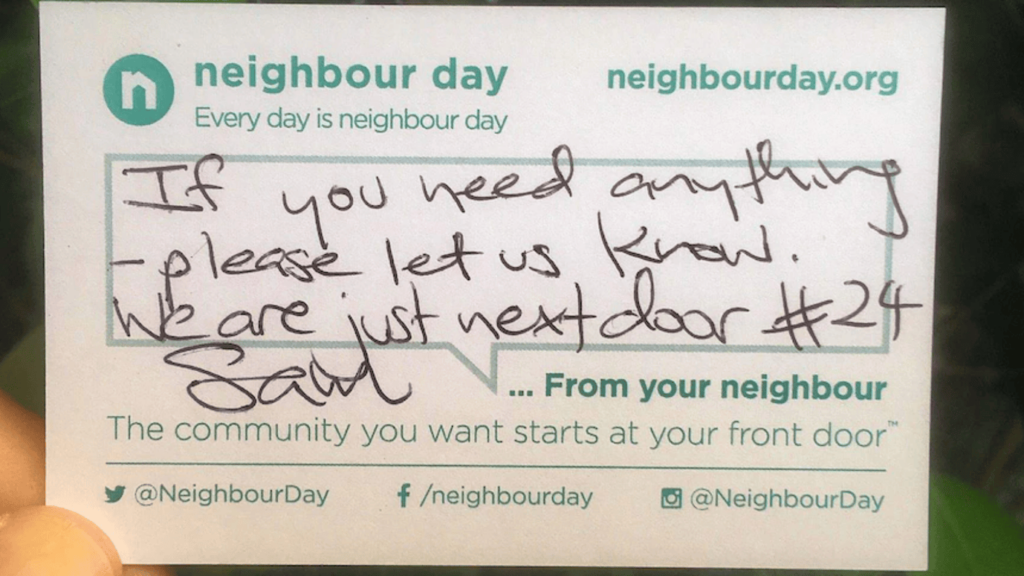 neighbour day
neighbourday.org
Every day is neighbour day
If you need anything
- please let us know.
We are just next door #24
... From your neighbour
The community you want starts at your front door™
@NeighbourDay
/neighbourday
@NeighbourDay